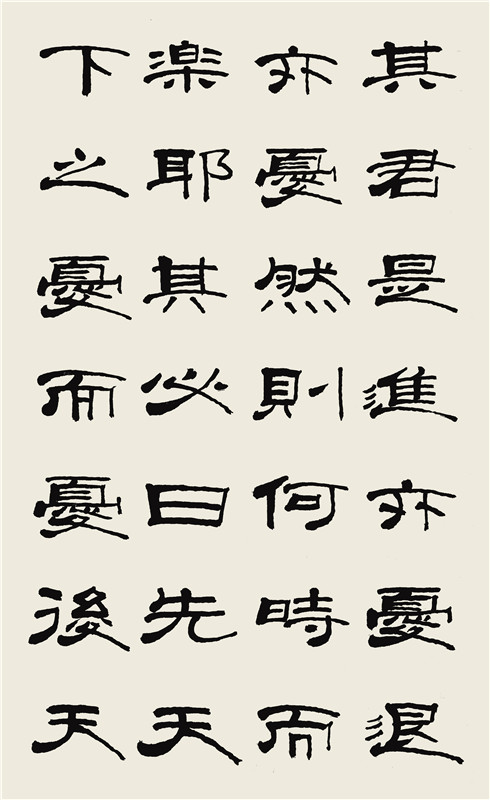 其君是進亦憂退
亦憂然則何時而
楽耶其必曰先天
下之憂而憂後天